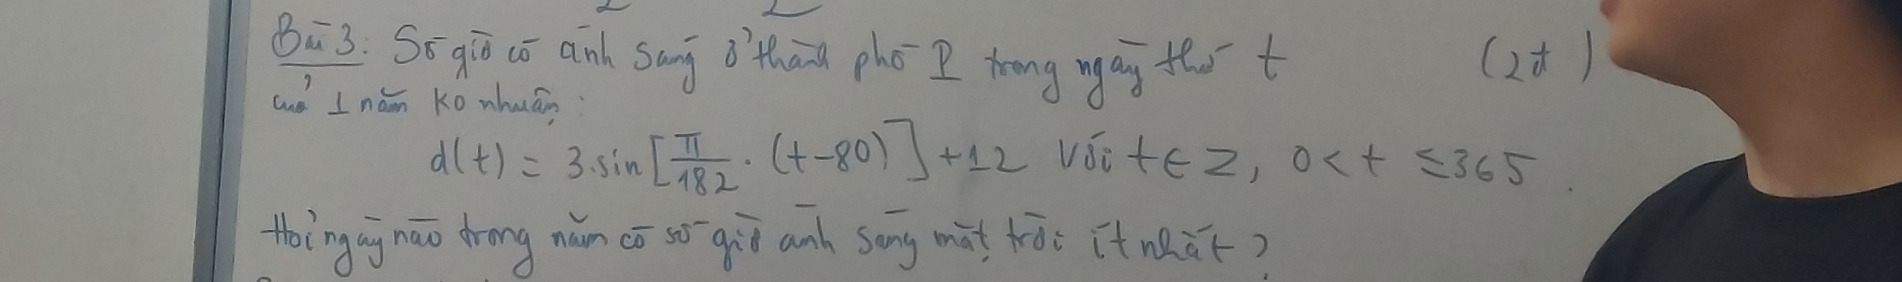 Bài 3: Số giờ có ánh sáng ở thành phố P trong ngày thứ t (2đ)
của 1 năm ko nhuận:
d(t) = 3.sin[π/182 . (t-80)] + 12 với t ∈ Z, 0 < t ≤ 365.
Hỏi ngày nào trong năm có số giờ ánh sáng mặt trời ít nhất?